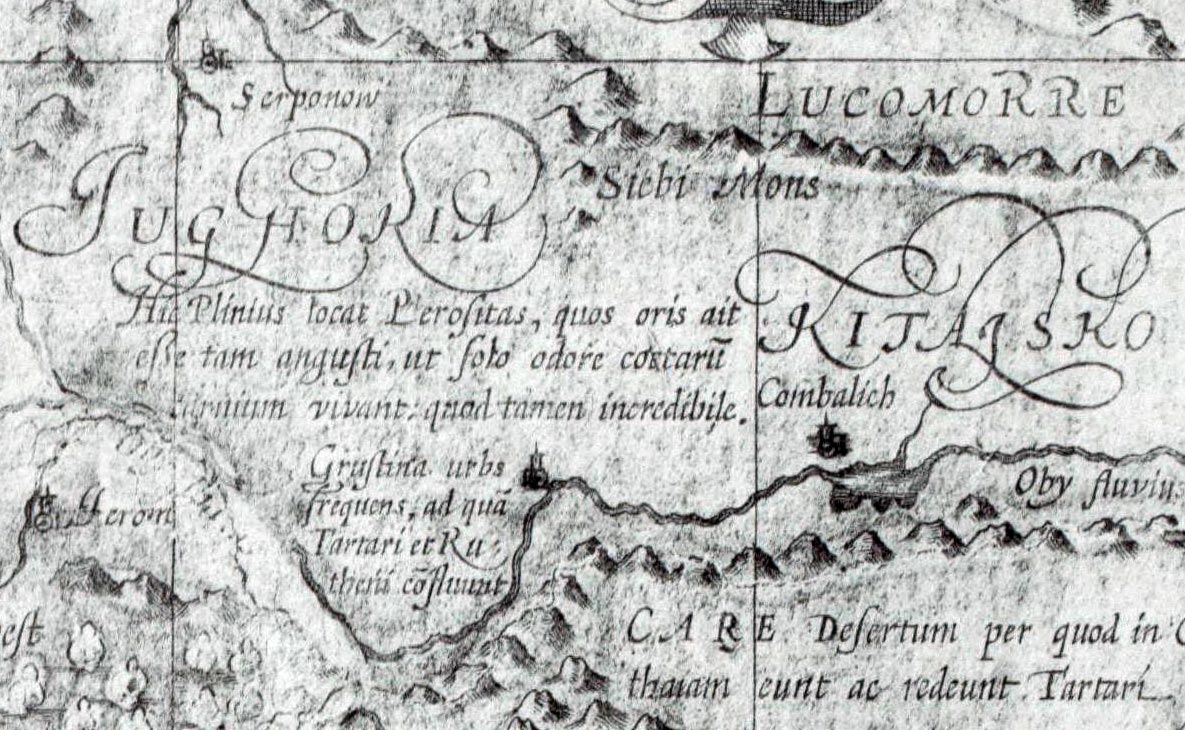 LUCOMORRE
Serponow
Siebi Mons
JUGHORIA
Hic Plinius locat Perositas, quos oris ait
esse tam angusti, ut solo odore coctarũ
carnium vivant: quod tamen incredibile.
KITAISKO
Combalich
Grustina urbs
frequens, ad quã
Tartari et Ru
theni cõfluunt
Oby fluvius
Jerom
CARE Desertum per quod in C
thaiam eunt ac redeunt Tartari